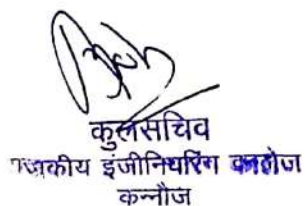 कुलसचिव
राजकीय इंजीनियरिंग कालेज
कन्नौज